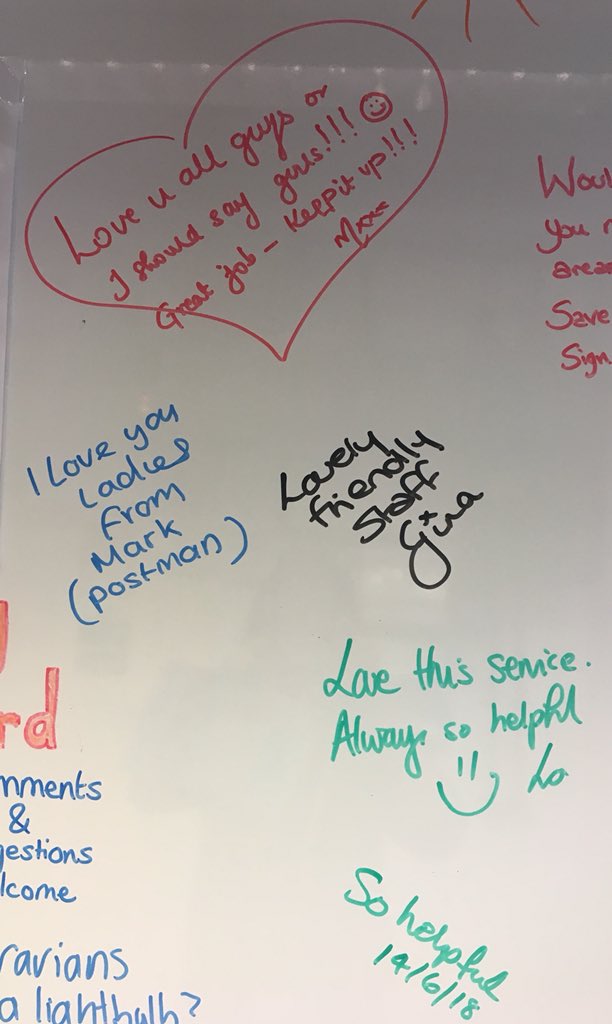 Love u all guys or
I should say girls!!!
Great job - Keep it up!!!
Mxxx
Woul
you n
areas
Save
Sign
I Love you
Ladies
From
Mark
(postman)
Lovely
friendly
staff
Gina
Love this service.
Always so helpful
Lo
rd
mments
&
gestions
lcome
rarians
a lightbulb?
So helpful
14/6/18